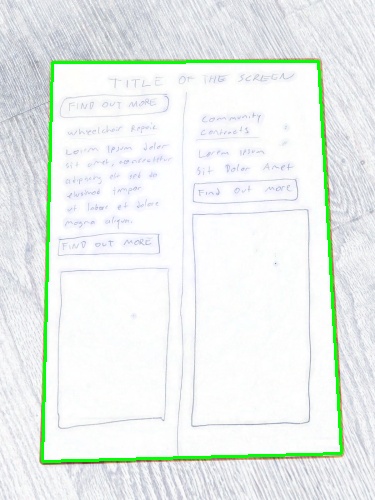 TITLE OF THE SCREEN
FIND OUT MORE
Wheelchair Repair
Lorem Ipsum dolor
sit amet, consectetur
adipiscing elit sed do
eiusmod tempor
ut labore et dolore
magna aliqua.
FIND OUT MORE
Community
Contracts
Lorem Ipsum
Sit Dolor Amet
Find Out More